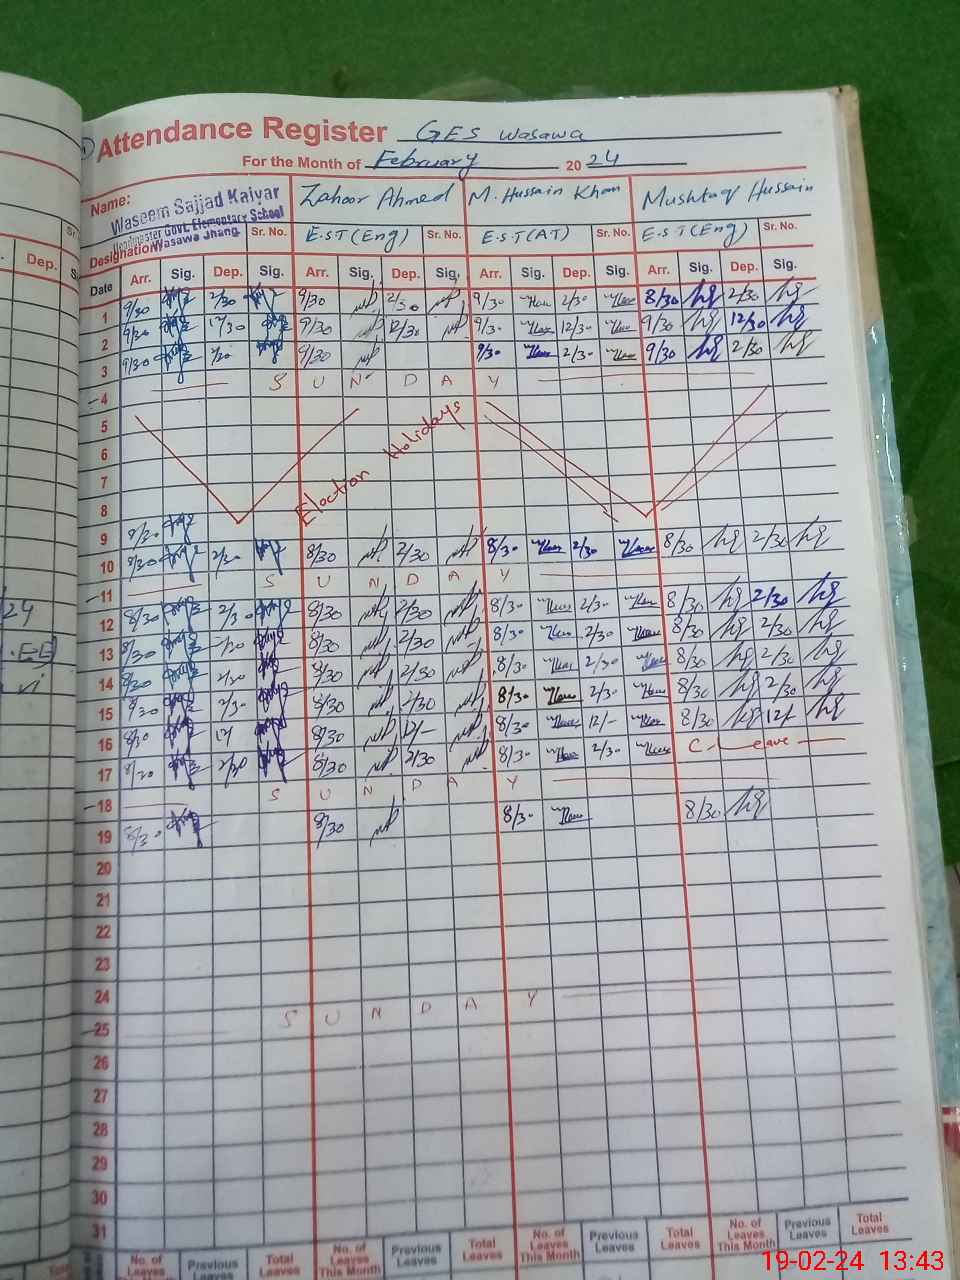 Attendance Register GES Wasawa
For the Month of February 2024
Name: Waseem Sajjad Kaiyar Zahoor Ahmed M. Hussain Khan Mushtaq Hussain
Headmaster Govt. Elementary School
Designation Wasawa Jhang Sr. No. E.S.T (Eng) Sr. No. E.S.T (AT) Sr. No. E.S.T (Eng) Sr. No.
Date Arr. Sig. Dep. Sig. Arr. Sig. Dep. Sig. Arr. Sig. Dep. Sig. Arr. Sig. Dep. Sig.
1 9/30 2/30 9/30 2/30 9/30 2/30 8/30 2/30
2 9/30 12/30 9/30 12/30 9/30 12/30 9/30 12/30
3 9/30 9/30 9/30 2/30 9/30 2/30
4 SUNDAY
5
6 Election Holidays
7
8
9 8/30
10 8/30 2/30 8/30 2/30 8/30 2/30 8/30 2/30
11 SUNDAY
12 8/30 2/30 8/30 2/30 8/30 2/30 8/30 2/30
13 8/30 8/30 2/30 8/30 2/30 8/30 2/30
14 8/30 2/30 8/30 2/30 8/30 2/30 8/30 2/30
15 8/30 2/30 8/30 2/30 8/30 2/30 8/30 2/30
16 8/30 8/30 12/- 8/30 12/- 8/30 12/-
17 8/30 2/30 8/30 2/30 8/30 2/30 C-Leave
18 SUNDAY
19 8/30 8/30 8/30 8/30
20
21
22
23
24
25 SUNDAY
26
27
28
29
30
31
No. of Leaves Previous Leaves Total Leaves No. of Leaves This Month Previous Leaves Total Leaves No. of Leaves This Month Previous Leaves Total Leaves No. of Leaves This Month Previous Leaves Total Leaves
Dep.
19-02-24 13:43